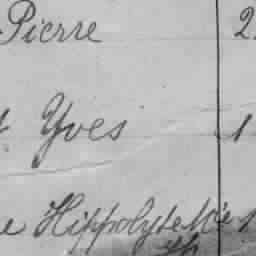 Pierre 2
Yves 1
e Hippolyte Me